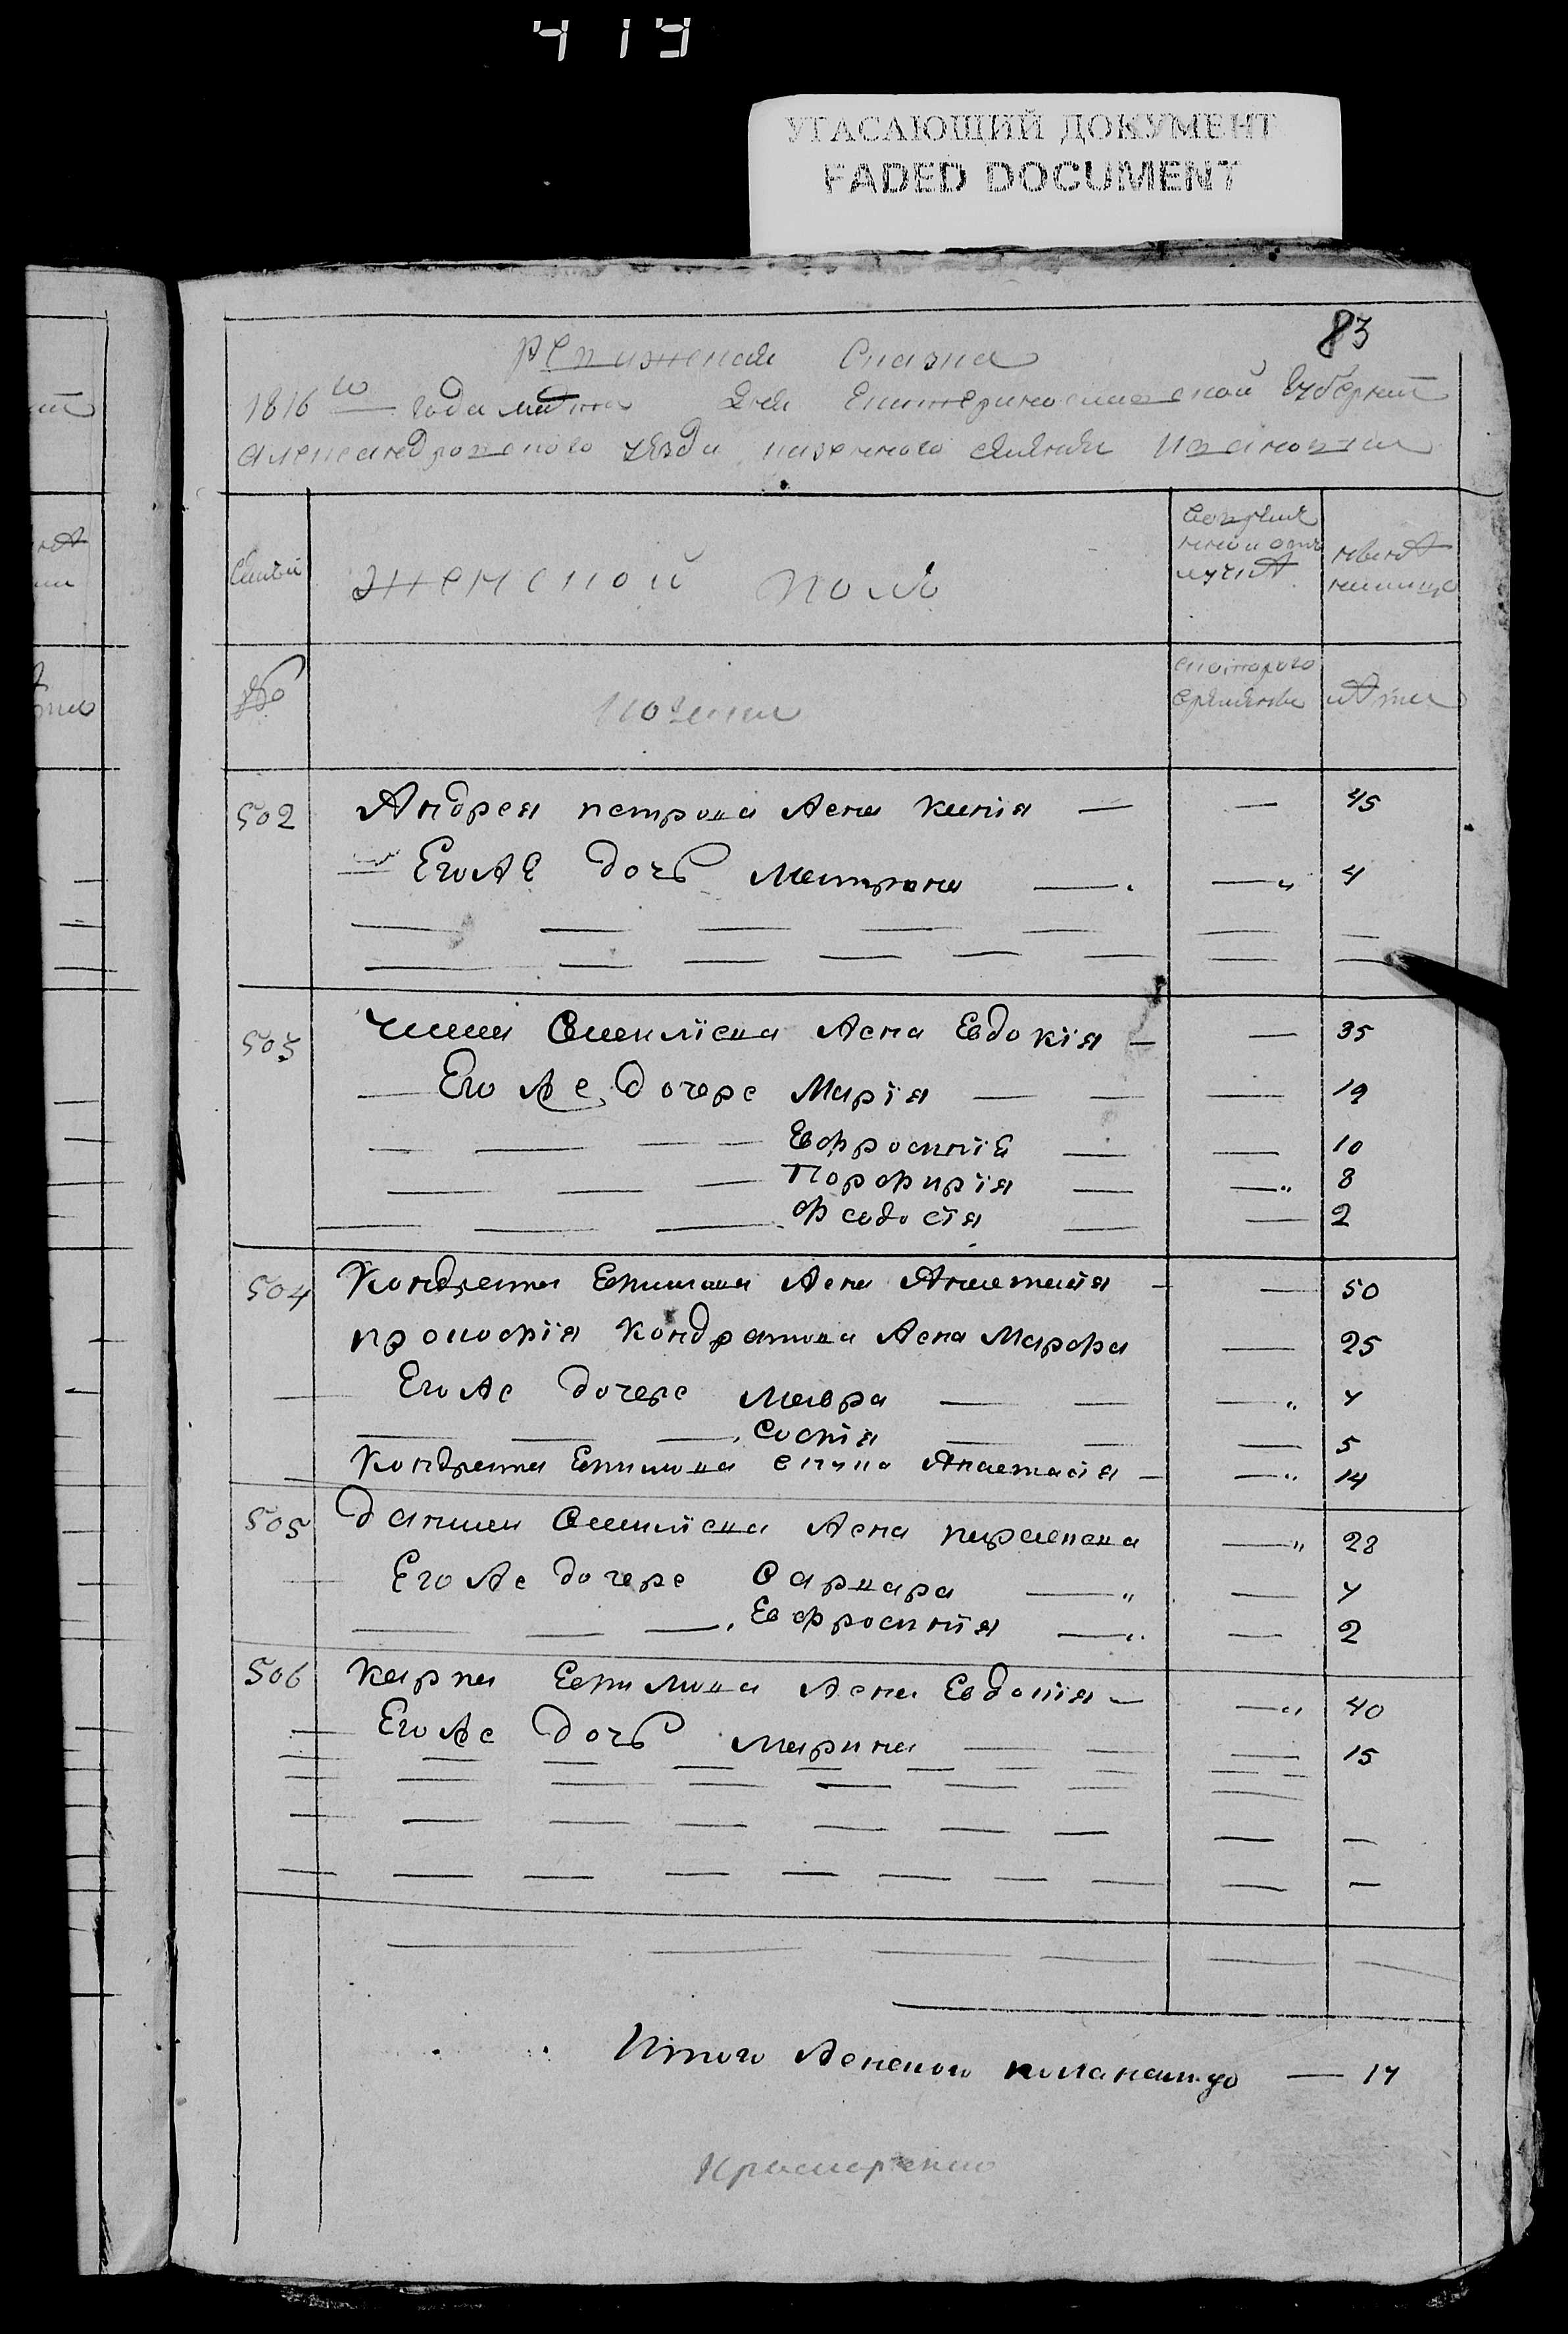 419
УГАСАЮЩИЙ ДОКУМЕНТ
FADED DOCUMENT
83
Ревижская Сказка
1816го года дня Екатеринославской Губернии
Александровского уезда казенного селения Ивановки
Семьи женской пол
№
лета
502 Андрея петрова жена Ксенія — — 45
Его же дочь Матрона — — 4
503 Василіева жена Евдокія — — 35
Его же дочере Марія — — — 12
Евфросинія — — 10
Порфирія — — 8
Феодосія — — 2
504 Кондрата Ефимова жена Анастасія — — 50
прокофія Кондратова жена Марфа — 25
Его же дочере Мавра — — — 7
Софія — — — 5
Кондрата Ефимова Анастасія — — 14
505 Данила Василіева жена параскева — 28
Его же дочере Варвара — — 7
Евфросинія — — 2
506 Карпа Ефимова жена Евдокія — — 40
Его же дочь Марина — — — 15
Итого женского пола налицо — 17